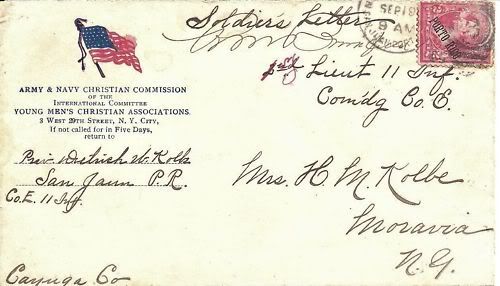 Soldiers Letter
SEP 19
9 AM
PORTO RICO
1st Lieut 11 Inf.
Com'dg Co. E.
ARMY & NAVY CHRISTIAN COMMISSION
OF THE
INTERNATIONAL COMMITTEE
YOUNG MEN'S CHRISTIAN ASSOCIATIONS.
3 WEST 29TH STREET, N. Y. CITY,
If not called for in Five Days,
return to
Priv. Dietrich W. Kolb
San Jaun P.R.
Co. E. 11 Inf.
Mrs. H. M. Kolbe
Moravia
N.Y.
Cayuga Co